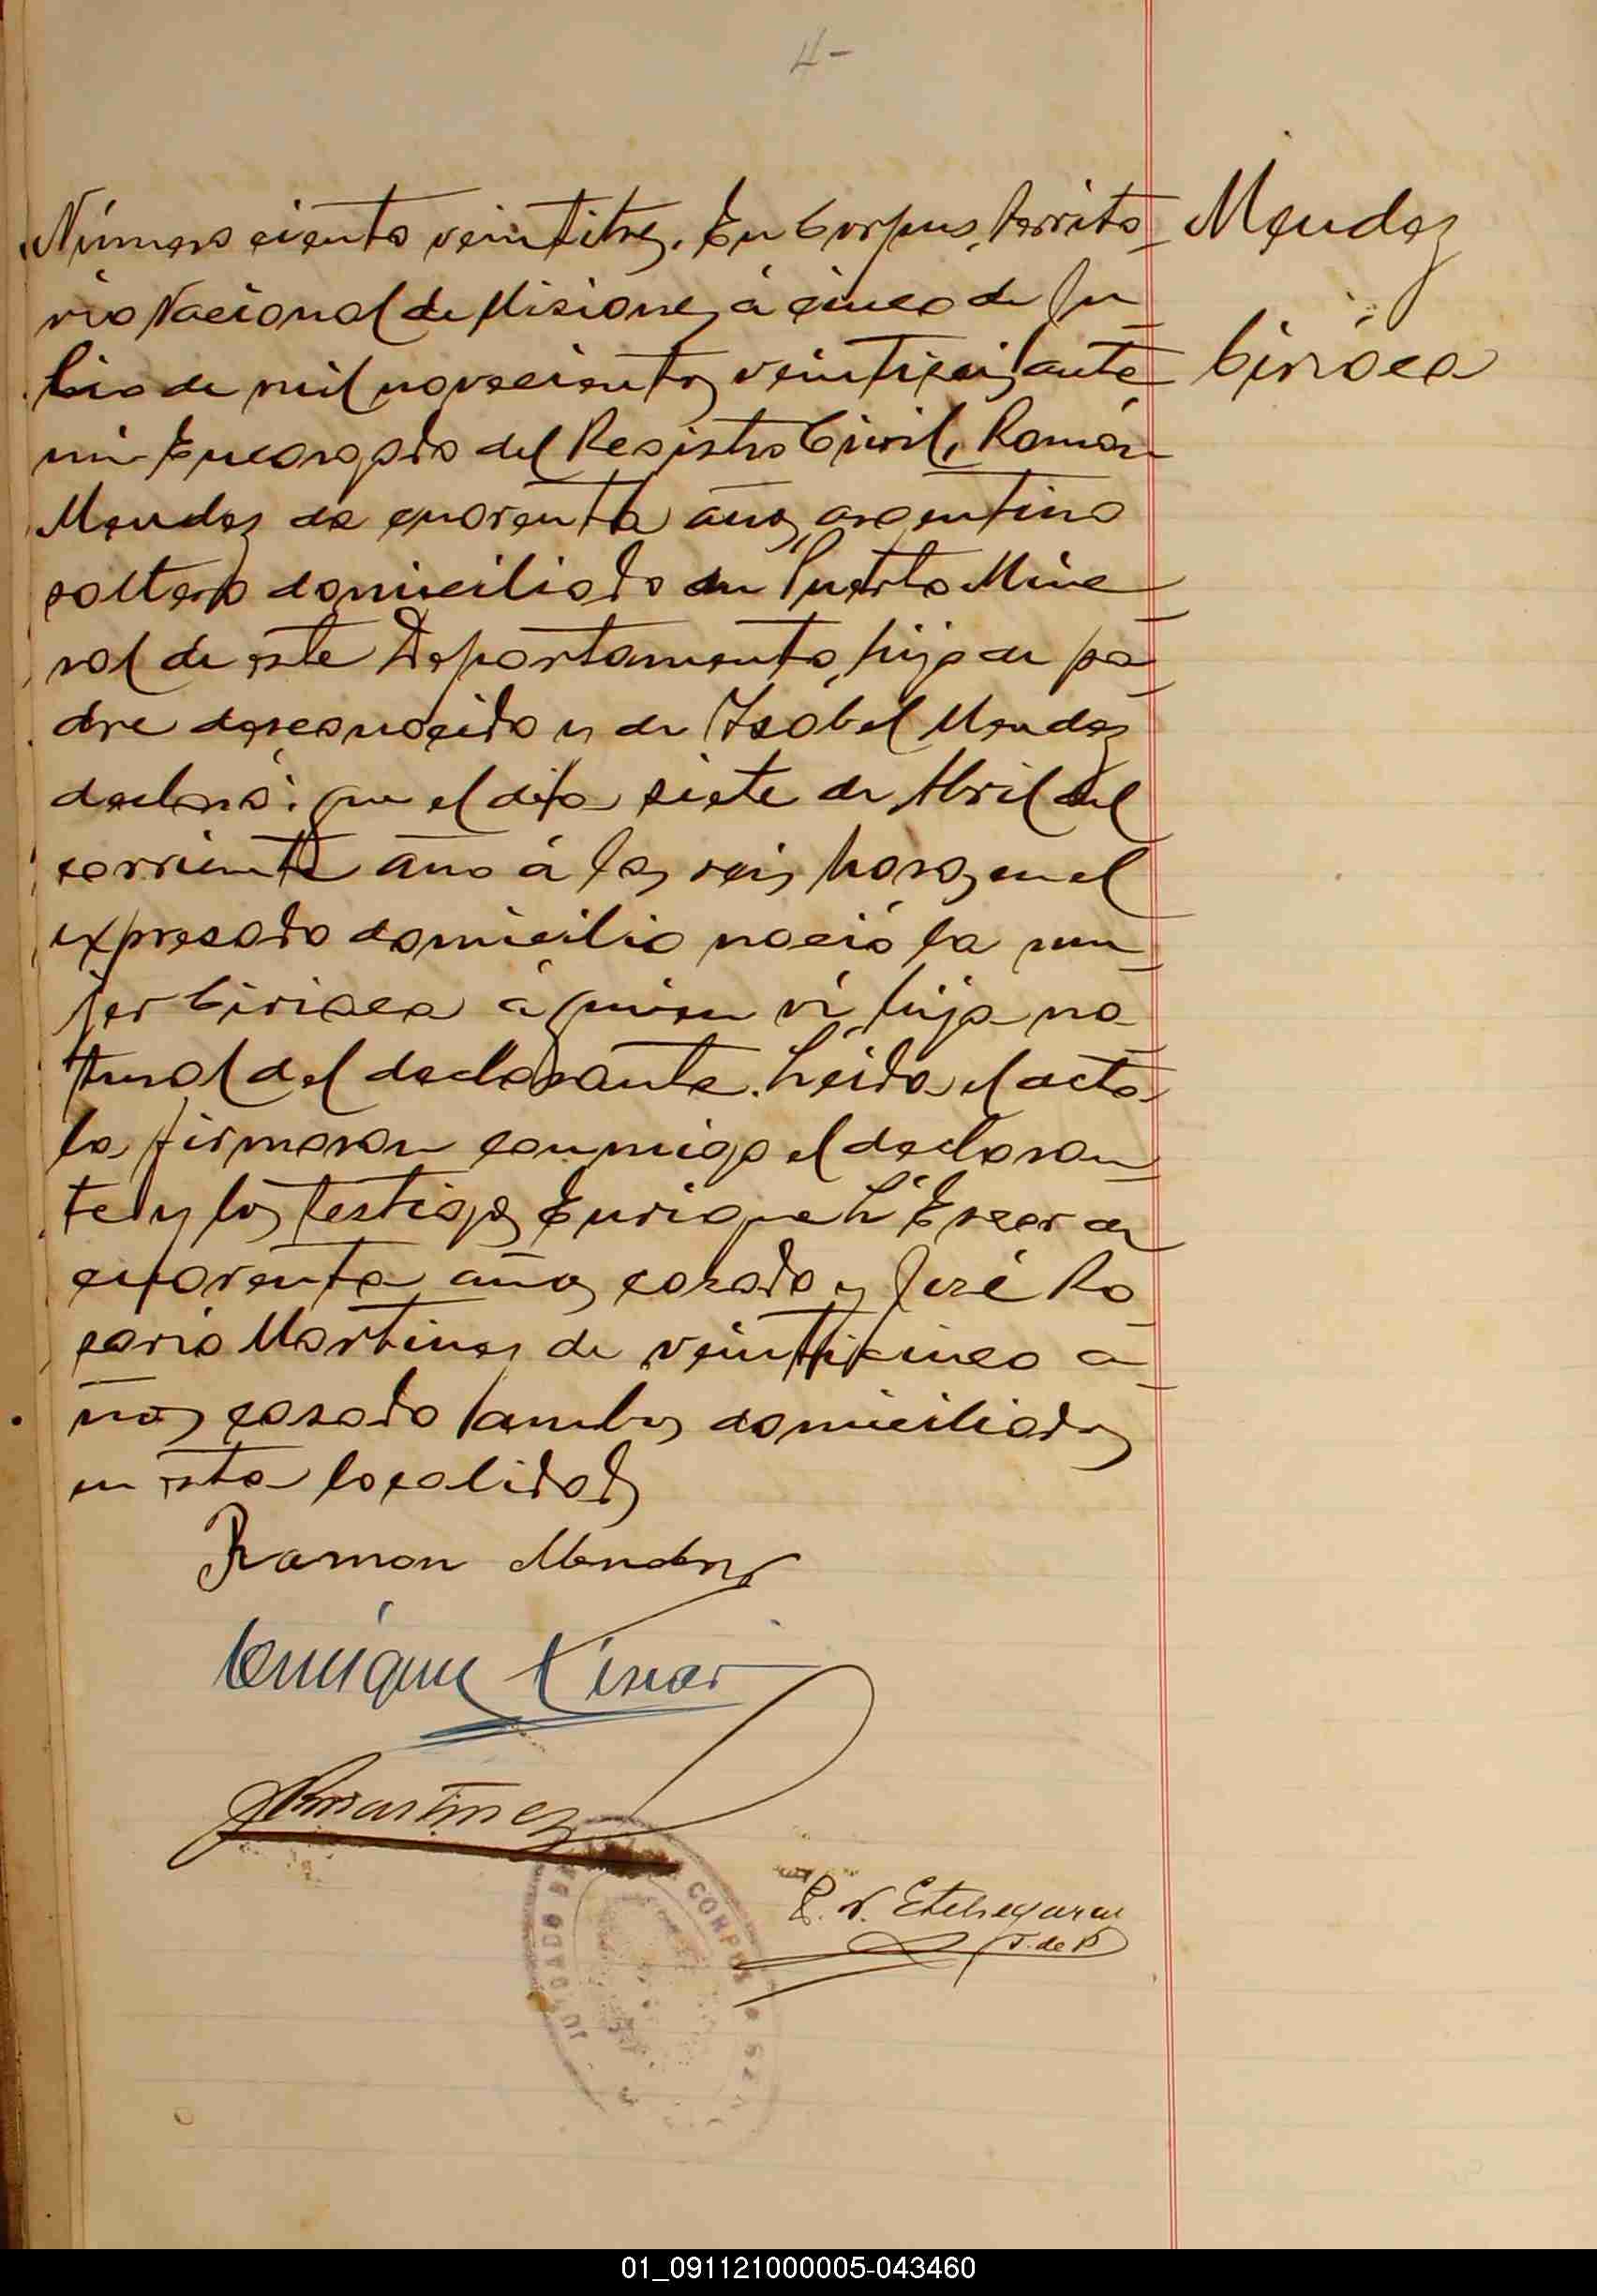 4-
Número ciento veintitres. En Corpus, Territo-
rio Nacional de Misiones á cinco de Ju-
lio de mil novecientos veintiseis ante
mi Encargado del Registro Civil, Ramón
Mendez de cuarenta años, argentino
soltero domiciliado en Puerto Mine-
ral de este Departamento, hijo de pa-
dre desconocido y de Isabel Mendez
declaró: que el dia siete de Abril del
corriente año á las seis horas en el
expresado domicilio nació la mu-
jer Ciriaca á quien vi hija na-
tural del declarante. Leida el acta
la firmaron conmigo el declaran-
te y los testigos Enrique de
cuarenta años casado y José Ro-
sario Martinez de veinticinco a-
ños casado ambos domiciliados
en esta localidad
Mendez
Ciriaca
Ramon Mendez
Enrique
JRMartinez
P. N. Etchegaray
J. de P
JUZGADO DE PAZ CORPUS
01_091121000005-043460